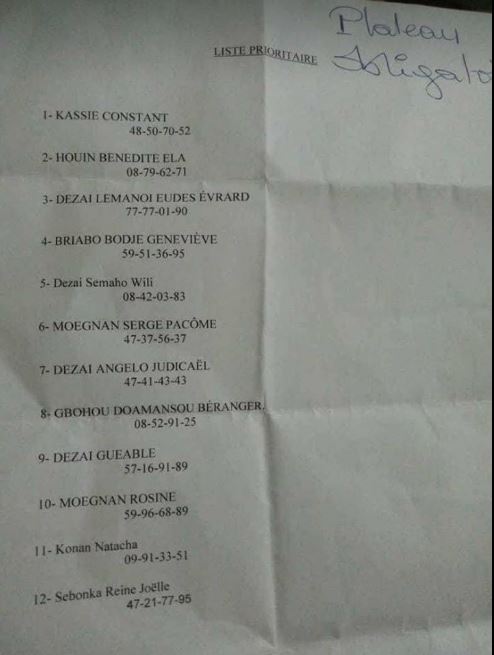 Plateau
LISTE PRIORITAIRE
1- KASSIE CONSTANT
48-50-70-52
2- HOUIN BENEDITE ELA
08-79-62-71
3- DEZAI LEMANOI EUDES ÉVRARD
77-77-01-90
4- BRIABO BODJE GENEVIÈVE
59-51-36-95
5- Dezai Semaho Wili
08-42-03-83
6- MOEGNAN SERGE PACÔME
47-37-56-37
7- DEZAI ANGELO JUDICAËL
47-41-43-43
8- GBOHOU DOAMANSOU BÉRANGER.
08-52-91-25
9- DEZAI GUEABLE
57-16-91-89
10- MOEGNAN ROSINE
59-96-68-89
11- Konan Natacha
09-91-33-51
12- Sebonka Reine Joëlle
47-21-77-95